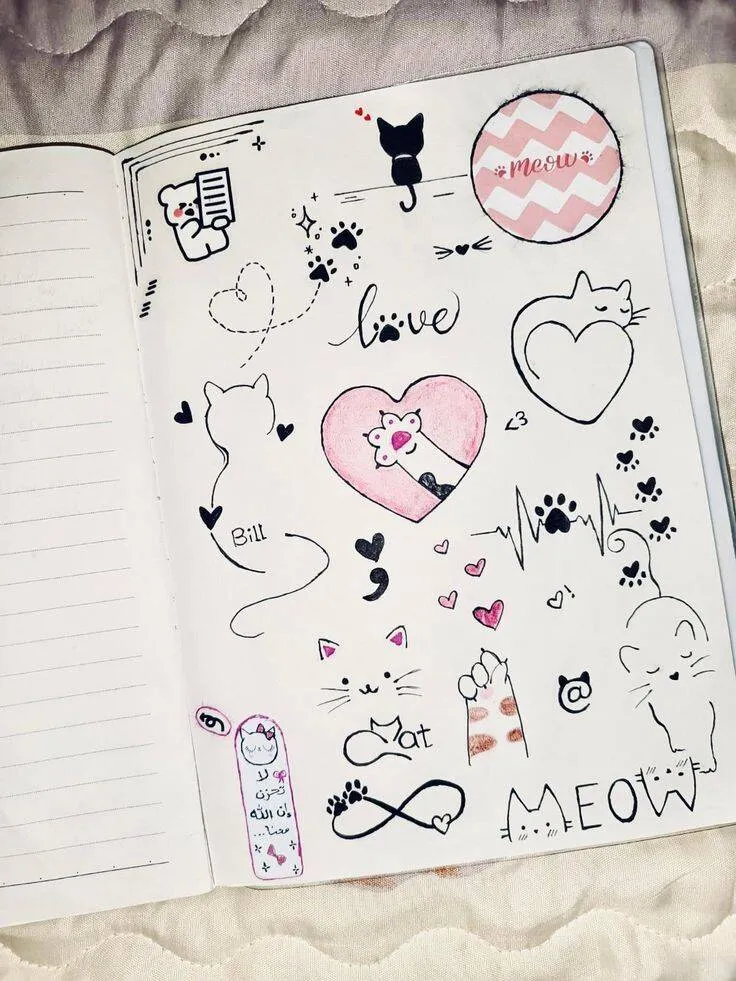 meow
love
<3
Bill
;
Cat
@
و
لا
تحزن
إن الله
معنا...
MEOW